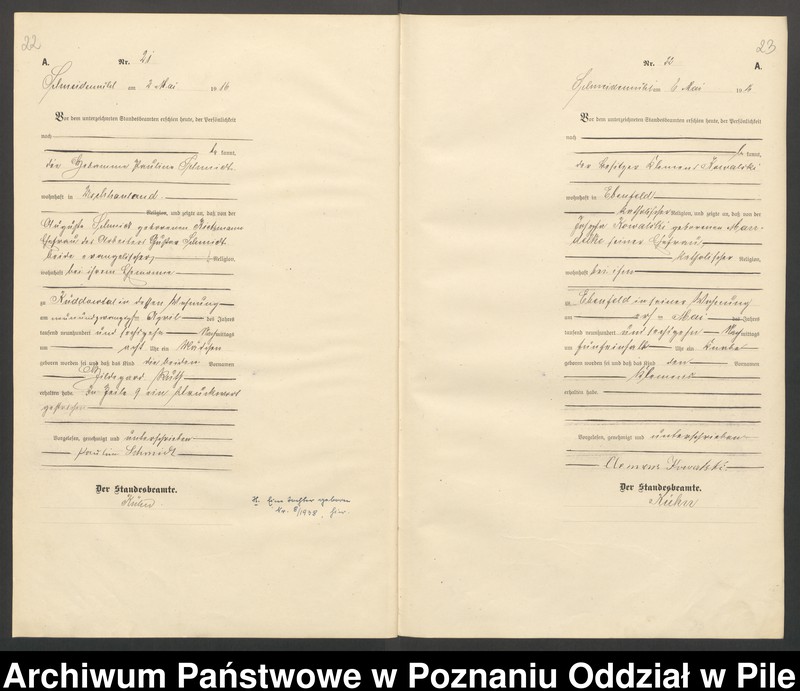 22
A.
Nr. 21
Schneidemühl am 2 Mai 1916
Vor dem unterzeichneten Standesbeamten erschien heute, der Persönlichkeit
nach
be kannt,
die Hebamme Pauline Schmidt
wohnhaft in
Religion, und zeigte an, daß von der
Auguste Schmidt geborenen
Ehefrau des Arbeiters Gustav Schmidt
beide evangelischer Religion,
wohnhaft bei ihrem Ehemanne
zu Küddowtal in dessen Wohnung
am neunundzwanzigsten April des Jahres
tausend neunhundert und sechzehn Nachmittags
um acht Uhr ein Mädchen
geboren worden sei und daß das Kind die beiden Vornamen
Hildegard Ruth
erhalten habe. In Zeile 9 ein Druckwort
gestrichen
Vorgelesen, genehmigt und unterschrieben
Pauline Schmidt
Der Standesbeamte.
Kühn
H. Eine Tochter geboren
Nr. 8/1938
23
A.
Nr. 22
Schneidemühl am 6 Mai 1916
Vor dem unterzeichneten Standesbeamten erschien heute, der Persönlichkeit
nach
be kannt,
der Besitzer Klemens Kowalski
wohnhaft in Ebenfeld
katholischer Religion, und zeigte an, daß von der
Josefa Kowalski geborenen
seiner Ehefrau
katholischer Religion,
wohnhaft bei ihm
zu Ebenfeld in seiner Wohnung
am Mai des Jahres
tausend neunhundert und sechzehn Nachmittags
um fünfeinhalb Uhr ein Knabe
geboren worden sei und daß das Kind den Vornamen
Klemens
erhalten habe.
Vorgelesen, genehmigt und unterschrieben
Kowalski
Der Standesbeamte.
Kühn
Archiwum Państwowe w Poznaniu Oddział w Pile